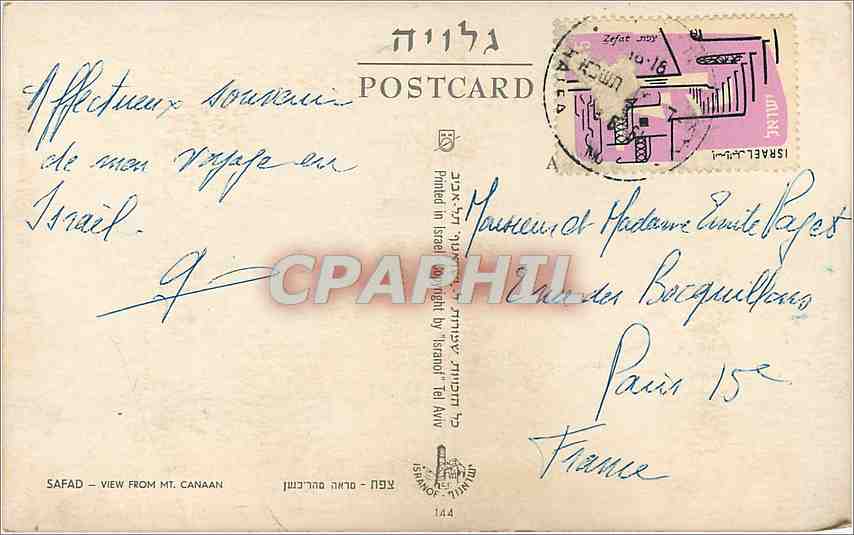 גלויה
POSTCARD
Affectueux souvenir
de mon voyage en
Israël.
Zefat צפת
ישראל
ISRAEL
HAIFA
A
Monsieur et Madame Emile Paget
rue des Bocquillons
Paris 15e
France
CPAPHIL
Printed in Israel Copyright by "Isranof" Tel Aviv
SAFAD – VIEW FROM MT. CANAAN
צפת - מראה מהר־כנען
ISRANOF
144